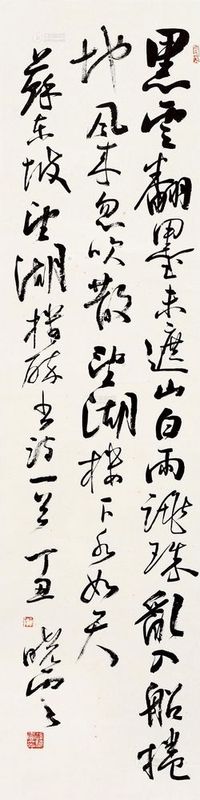 黑雲翻墨未遮山白雨跳珠亂入船捲
地風來忽吹散望湖樓下水如天
蘇東坡望湖樓醉書詩一首 丁丑 曉